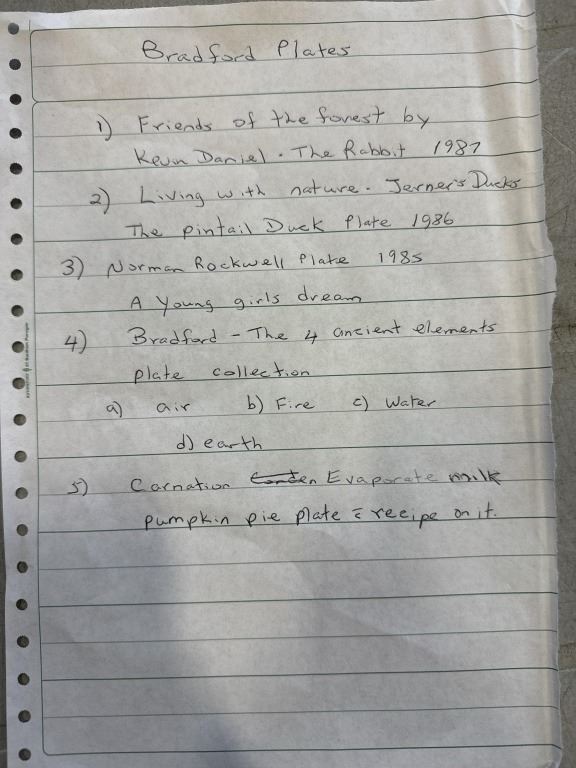 Bradford Plates
1) Friends of the forest by
Kevin Daniel. The Rabbit 1987
2) Living with nature. Jerner's Ducks
The pintail Duck Plate 1986
3) Norman Rockwell Plate 1985
A Young girls dream
4) Bradford - The 4 ancient elements
plate collection
a) air b) Fire c) Water
d) earth
5) Carnation Evaporate milk
pumpkin pie plate c̄ recipe on it.